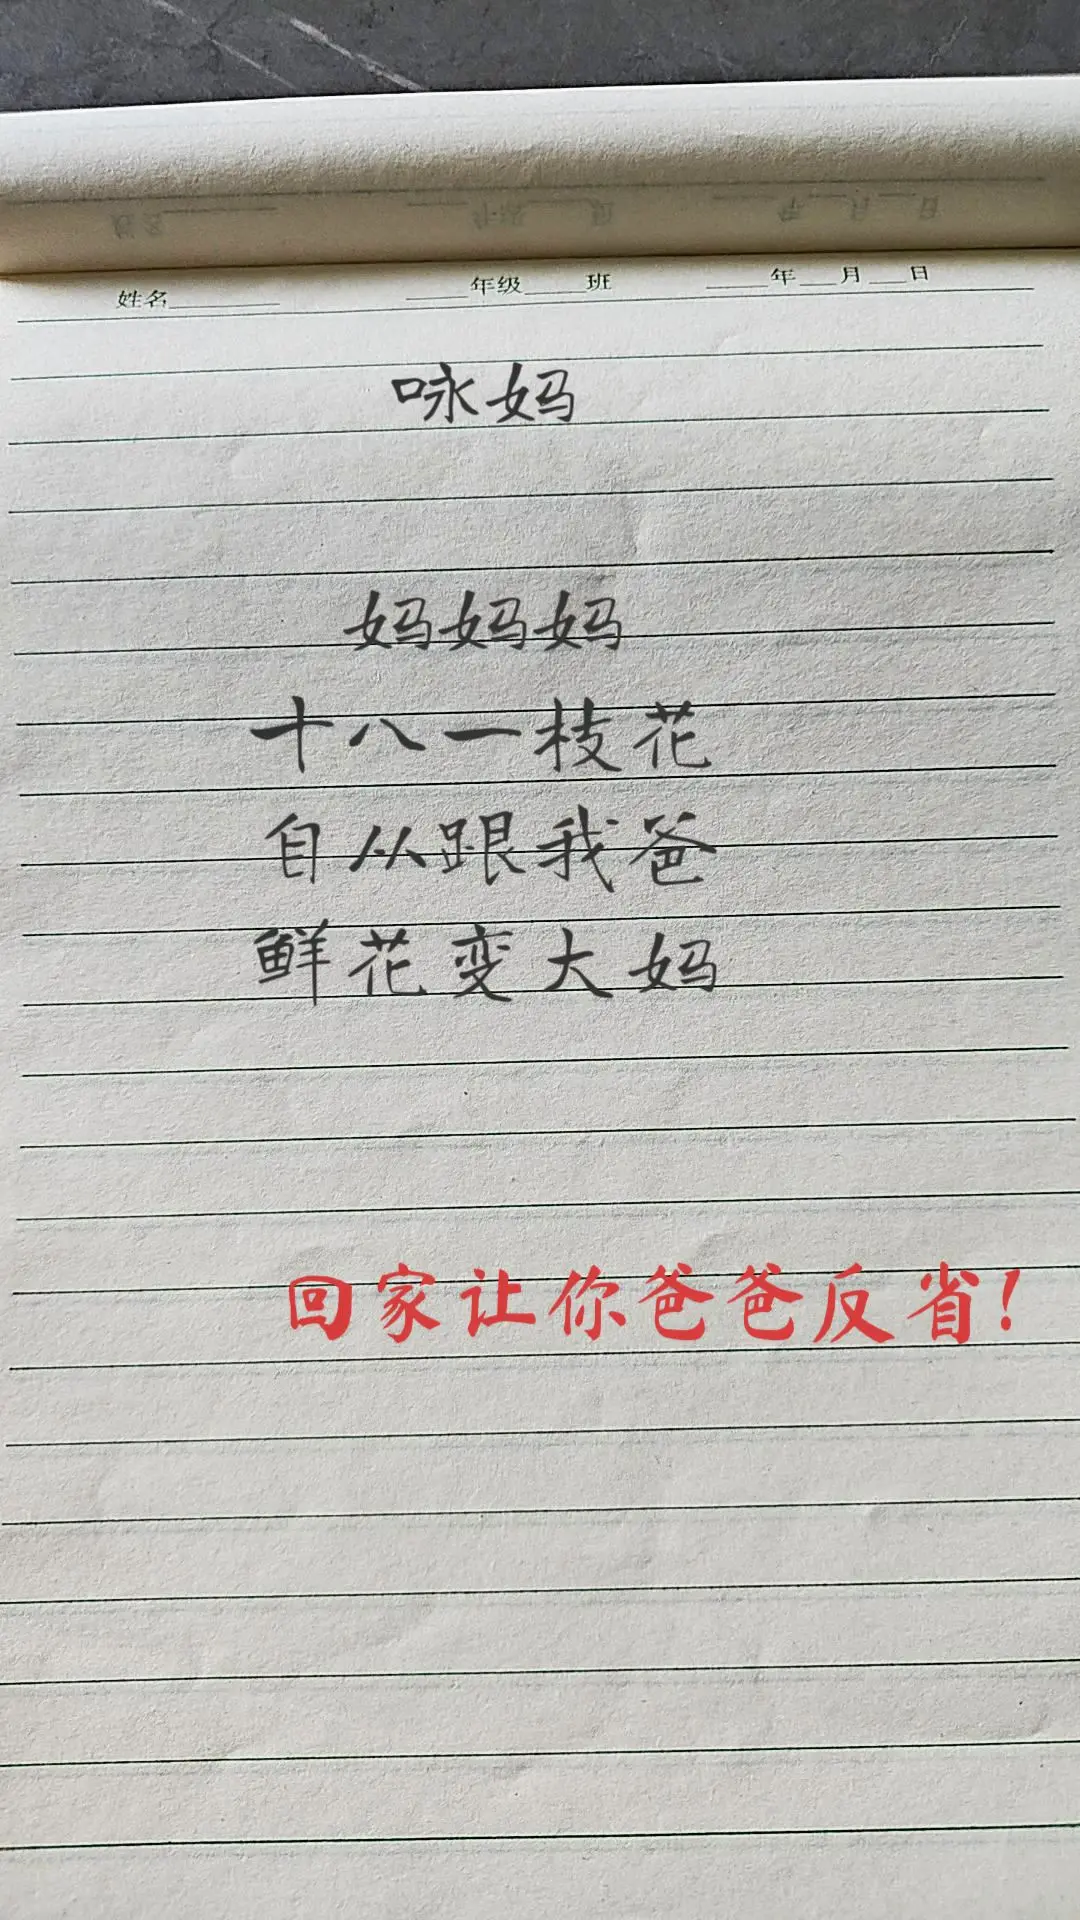 姓名________ ____年级____班 ____年___月___日
咏妈
妈妈妈
十八一枝花
自从跟我爸
鲜花变大妈
回家让你爸爸反省!